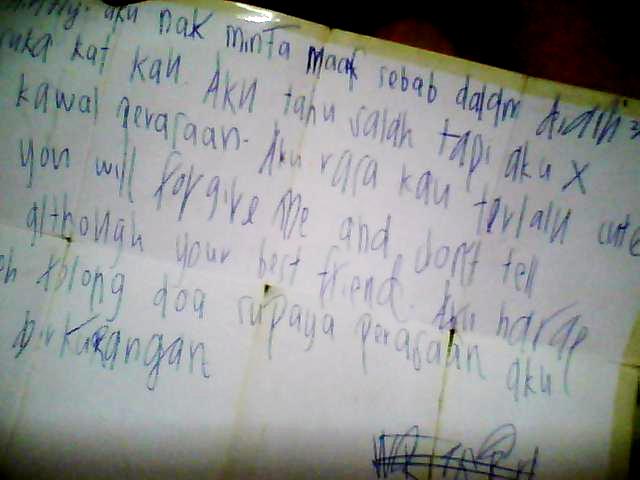 aku nak minta maaf sebab dalam diam"
suka kat kau. Aku tahu salah tapi aku X
kawal perasaan. Aku rasa kau terlalu cute
you will forgive me and don't tell
although your best friend. Aku harap
tolong doa supaya perasaan aku
berkurangan